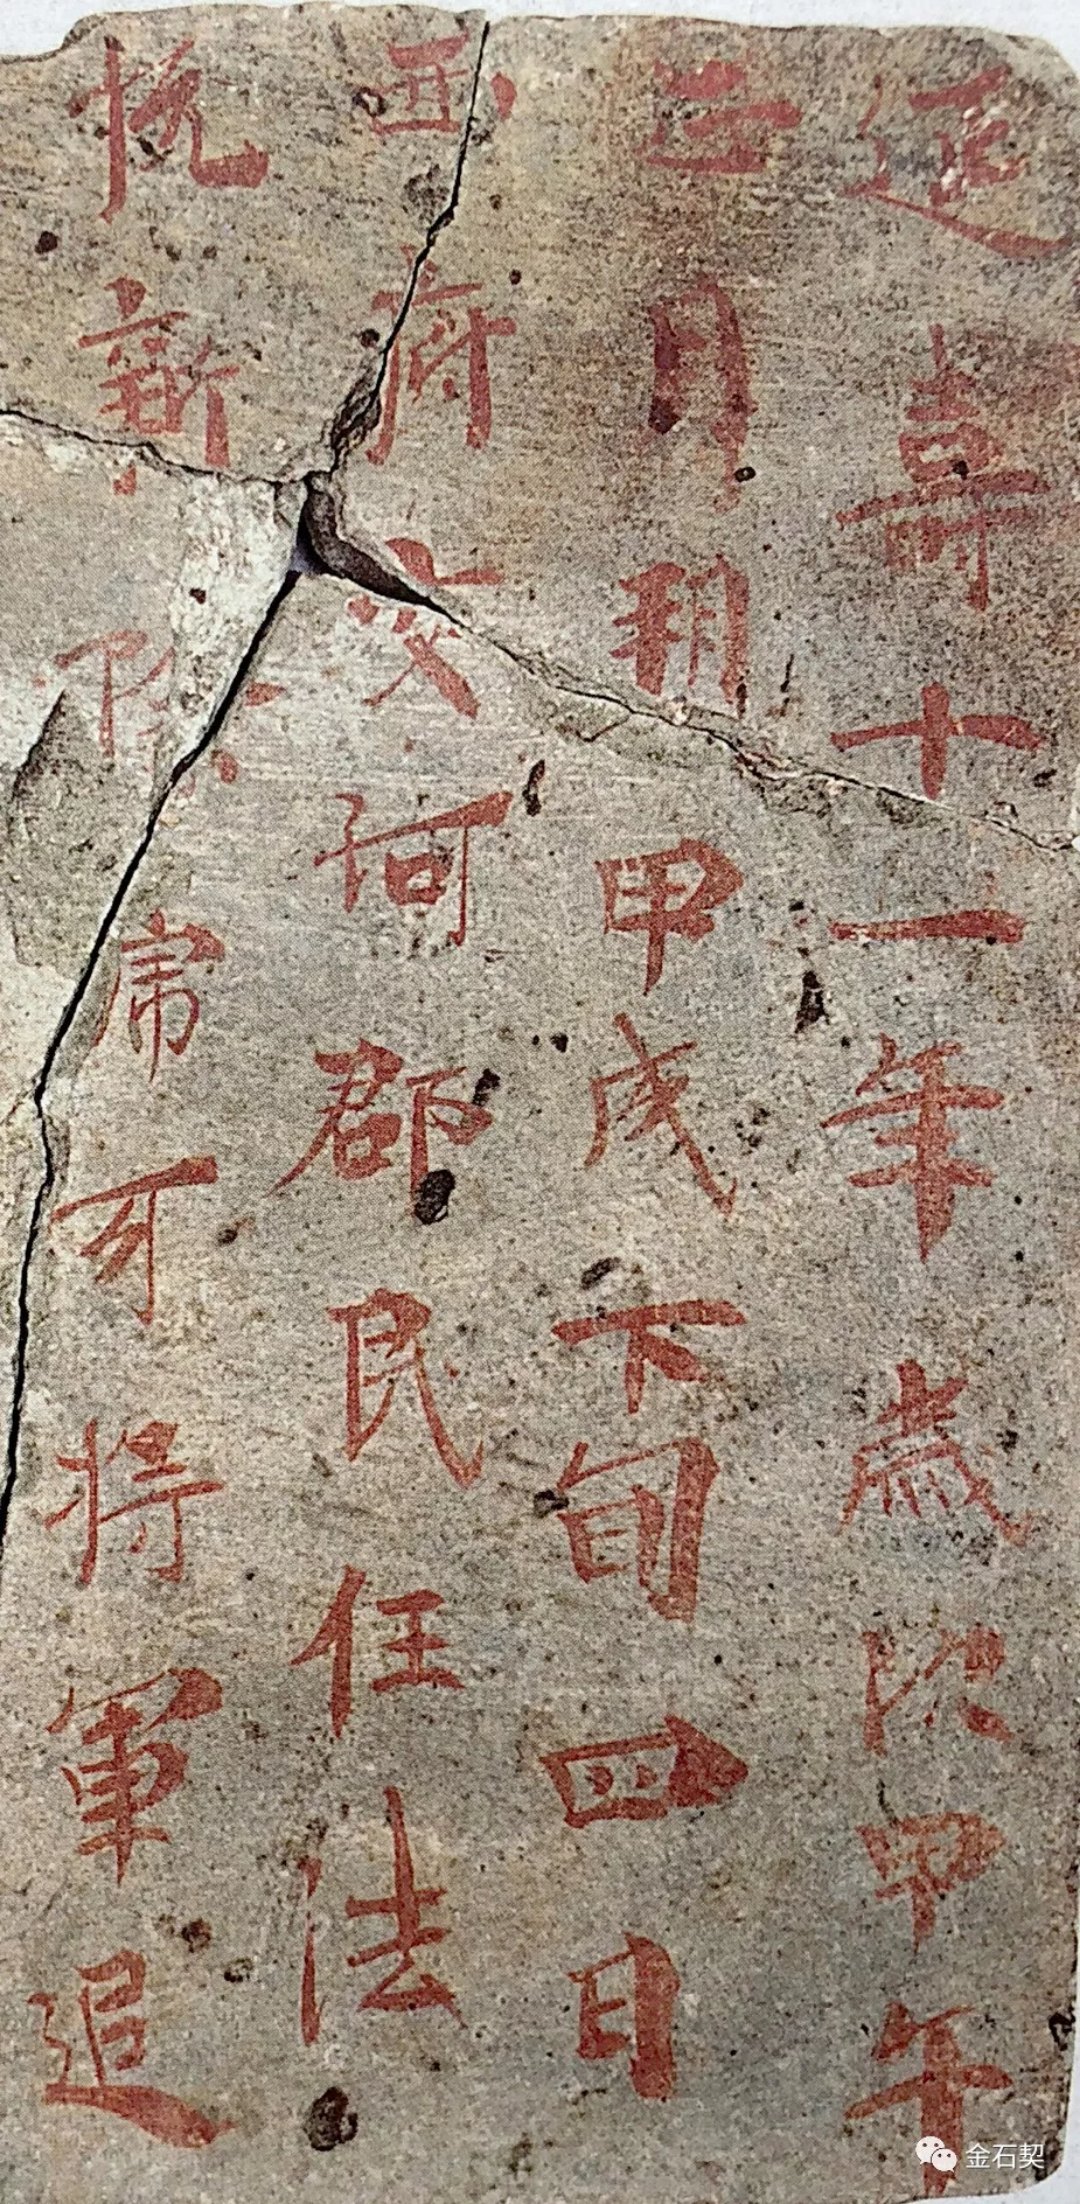 延壽十一年歲次甲午
正月朔甲戌下旬四日
西府交河郡民任法
悅新除虎牙將軍追
金石契